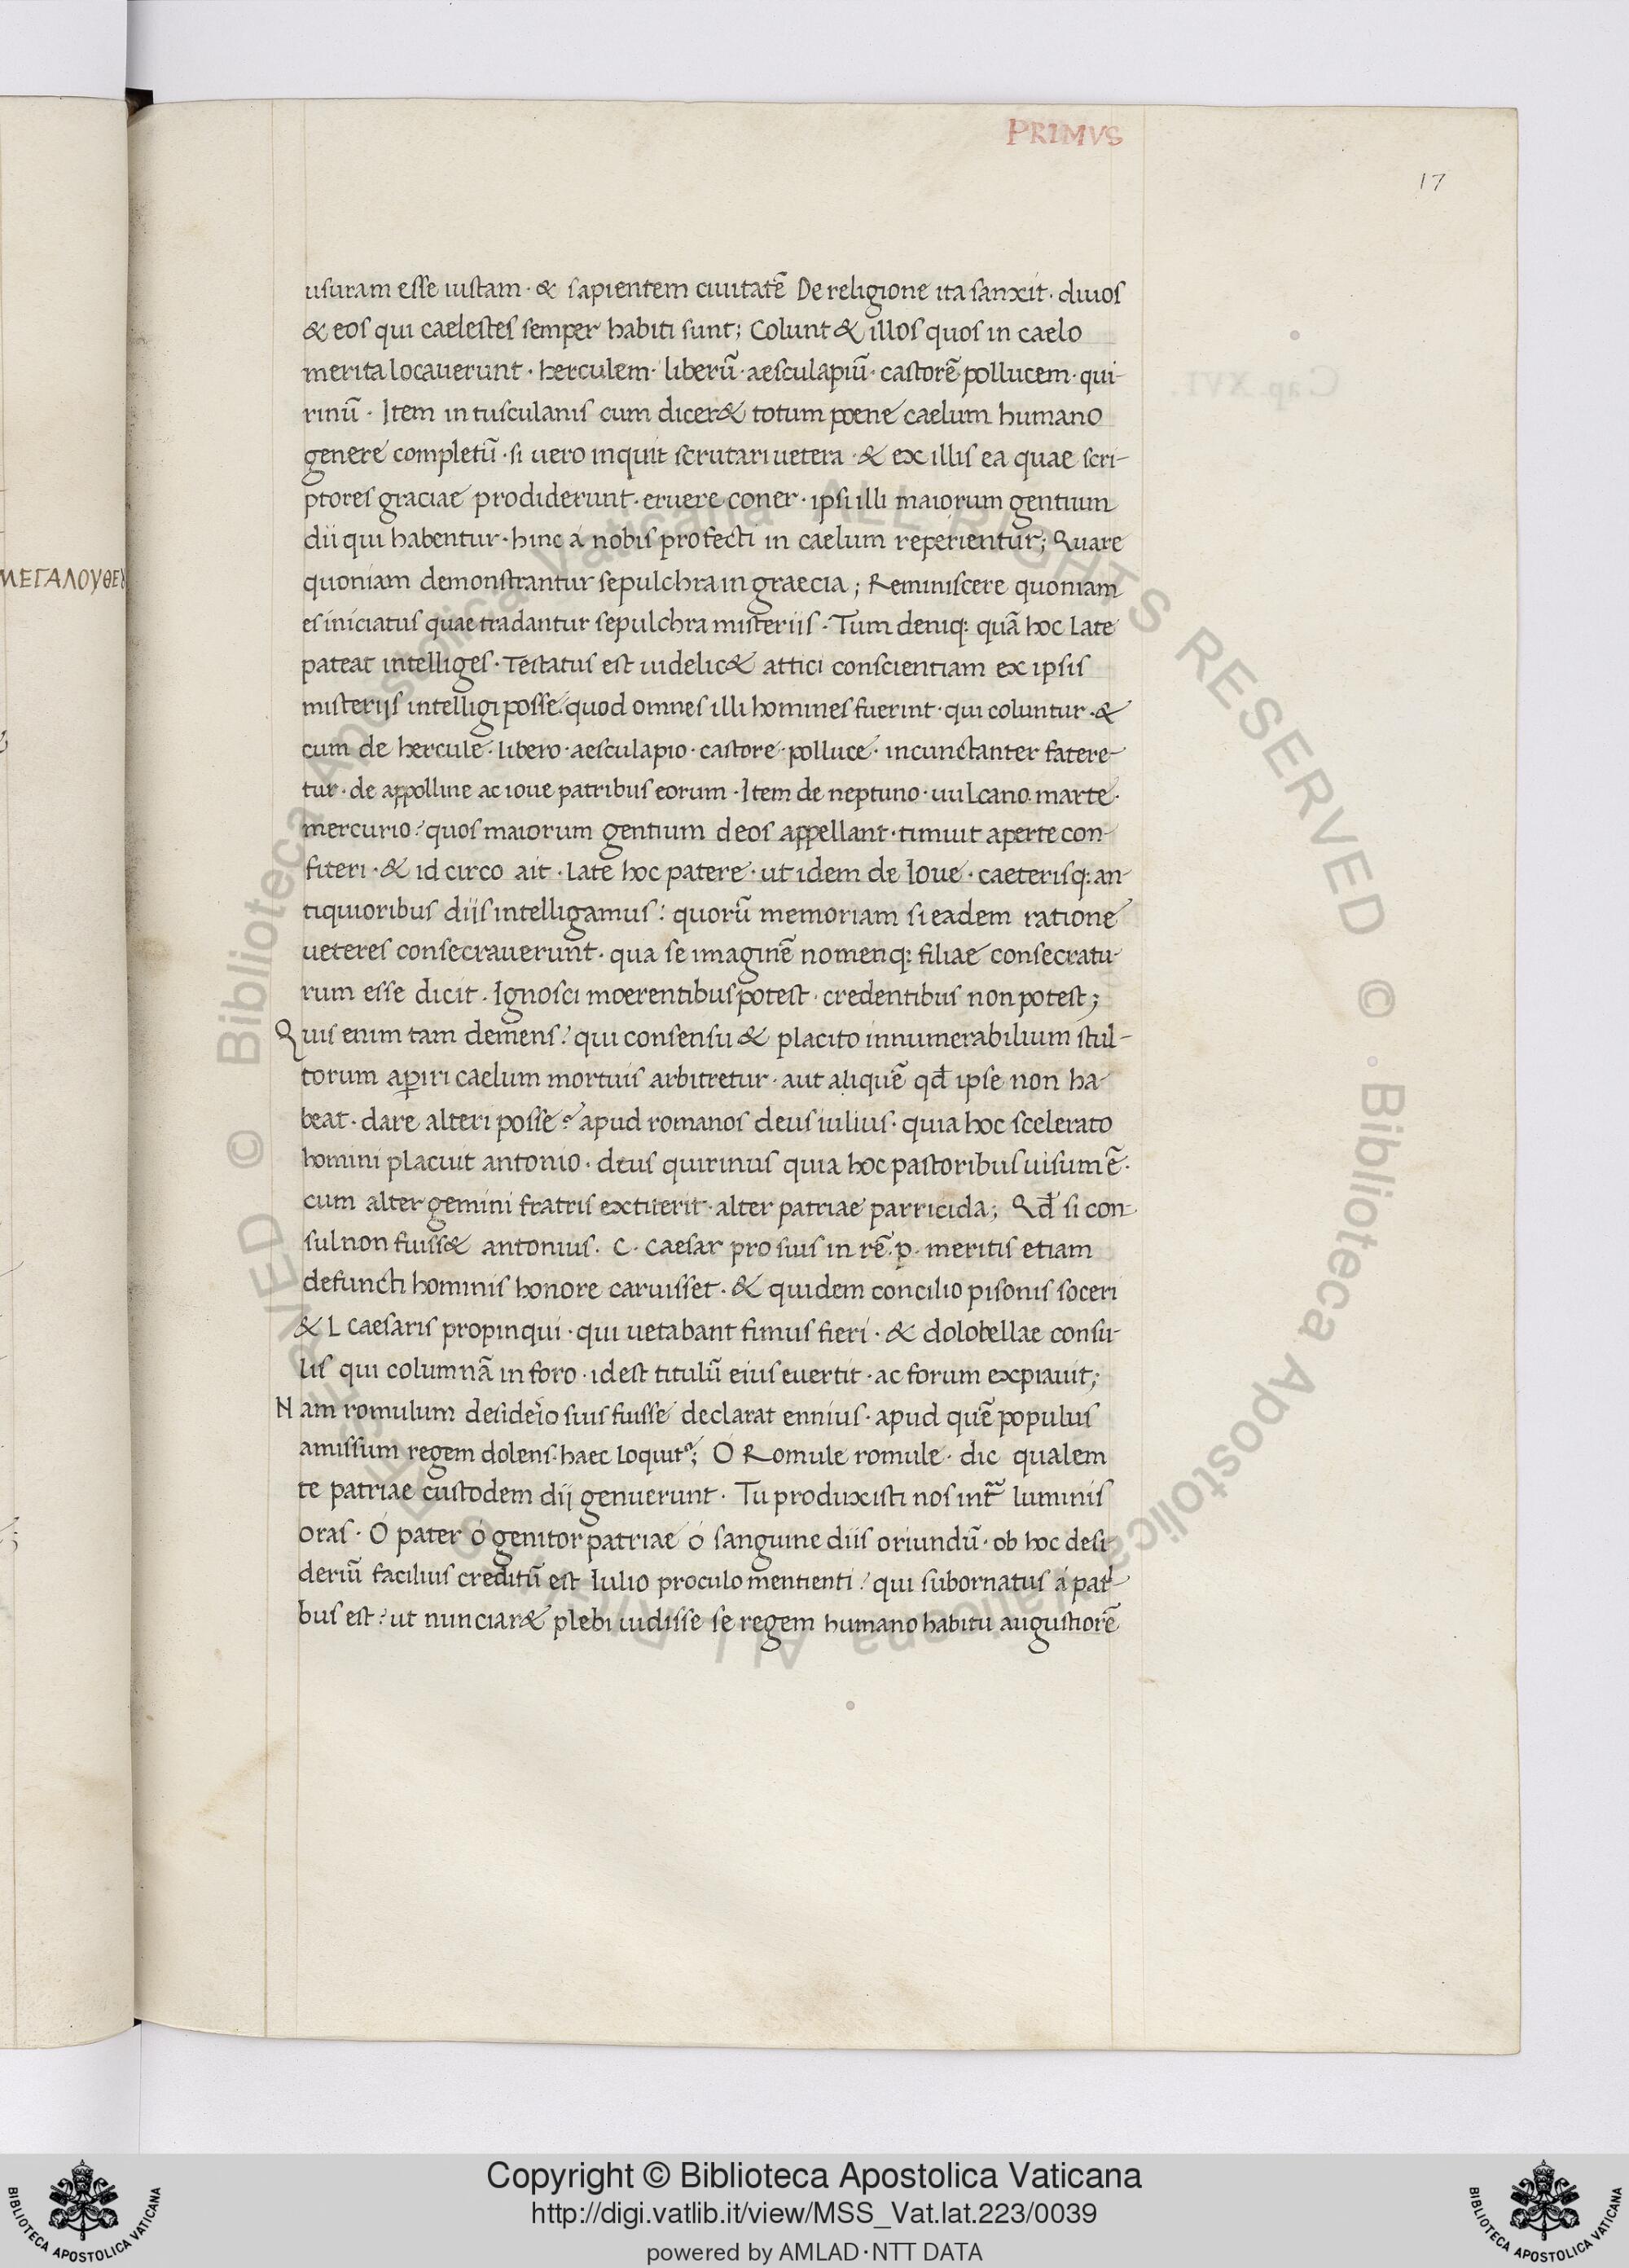 PRIMVS
17
usuram esse iustam · & sapientem ciuitatē De religione ita sanxit · diuos
& eos qui caelestes semper habiti sunt; Colunt & illos quos in caelo
merita locauerunt · herculem · liberū · aesculapiū · castorē pollucem · qui-
rinū · Item in tusculanis cum dicer& totum poene caelum humano
genere completū · si uero inquit scrutari uetera · & ex illis ea quae scri-
ptores graciae prodiderunt · eruere coner · ipsi illi maiorum gentium
dii qui habentur · hinc á nobis profecti in caelum reperientur; Quare
ΜΕΓΑΛΟΥΘΕΥ
quoniam demonstrantur sepulchra in graecia; Reminiscere quoniam
es iniciatus quae tradantur sepulchra misteriis · Tum deniq: quā hoc Late
pateat intelliges · Testatus est uidelic& attici conscientiam ex ipsis
misteriis intelligi posse quod omnes illi homines fuerint · qui coluntur · &
cum de hercule · libero · aesculapio · castore · polluce · incunctanter fatere-
tur · de appolline ac ioue patribus eorum · Item de neptuno · uulcano · marte ·
mercurio? quos maiorum gentium deos appellant · timuit aperte con-
fiteri · & id circo ait · Late hoc patere · ut idem de Ioue · caeterisq: an-
tiquioribus diis intelligamus: quorū memoriam si eadem ratione
ueteres consecrauerunt · qua se imaginē nomenq: filiae consecratu-
rum esse dicit · Ignosci moerentibus potest · credentibus non potest;
Quis enim tam demens? qui consensu & placito innumerabilium stul-
torum aꝑiri caelum mortuis arbitretur · aut aliquē qđ ipse non ha-
beat · dare alteri posse? apud romanos deus iulius · quia hoc scelerato
homini placuit antonio · deus quirinus quia hoc pastoribus uisum ē ·
cum alter gemini fratris extiterit · alter patriae parricida; Qđ si con-
sul non fuiss& antonius · C · caesar pro suis in rē · p · meritis etiam
defuncti hominis honore caruisset · & quidem concilio pisonis soceri
& L caesaris propinqui · qui uetabant fimus fieri · & dolobellae consu-
lis qui columnā in foro · id est titulū eius euertit · ac forum expiauit;
Nam romulum desiderio suis fuisse declarat ennius · apud quē populus
amissum regem dolens · haec loquit᷑; O Romule romule · dic qualem
te patriae custodem dii genuerunt · Tu produxisti nos int̄ luminis
oras · O pater ó genitor patriae ó sanguine diis oriundū · ob hoc desi-
deriū facilius creditū est Iulio proculo mentienti? qui subornatus á patⁱ-
bus est? ut nunciar& plebi uidisse se regem humano habitu augustiorē
Copyright © Biblioteca Apostolica Vaticana
http://digi.vatlib.it/view/MSS_Vat.lat.223/0039
powered by AMLAD·NTT DATA